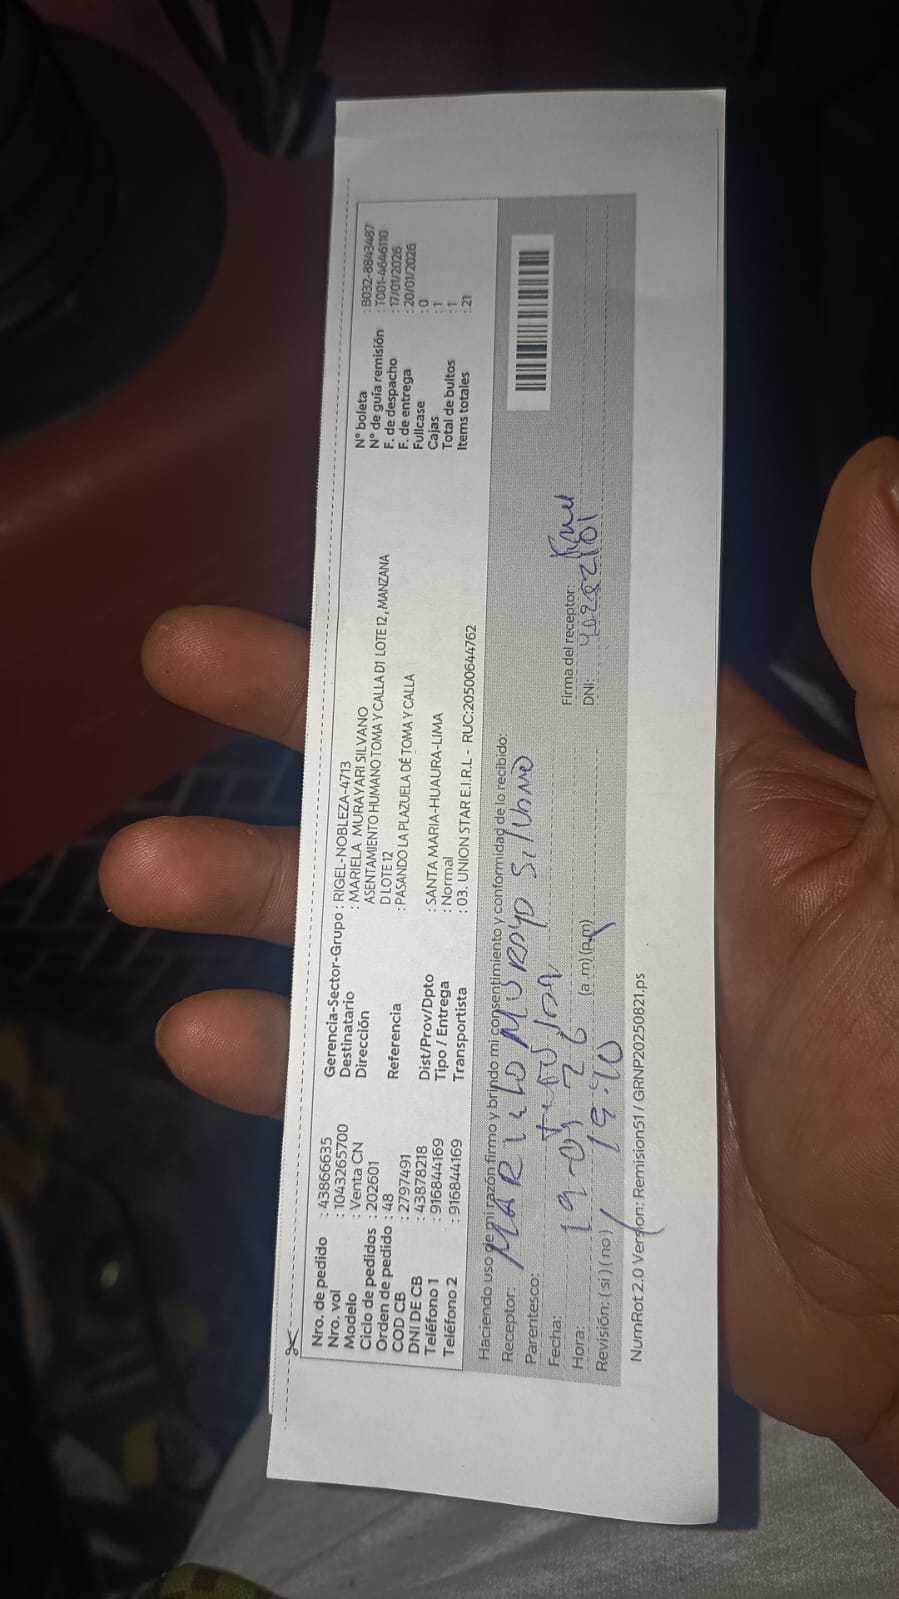 Nro. de pedido : 43866635
Nro. vol : 1043265700
Modelo : Venta CN
Ciclo de pedidos : 202601
Orden de pedido : 48
COD CB : 2797491
DNI DE CB : 43878218
Teléfono 1 : 916844169
Teléfono 2 : 916844169
Gerencia-Sector-Grupo : RIGEL-NOBLEZA-4713
Destinatario : MARIELA MURAYARI SILVANO
Dirección ASENTAMIENTO HUMANO TOMA Y CALLA D1 LOTE 12, MANZANA
D LOTE 12
Referencia : PASANDO LA PLAZUELA DE TOMA Y CALLA
Dist/Prov/Dpto : SANTA MARIA-HUAURA-LIMA
Tipo / Entrega : Normal
Transportista : 03. UNION STAR E.I.R.L - RUC:20500644762
N° boleta : B032-8843487
N° de guía remisión : T001-4646110
F. de despacho : 17/01/2026
F. de entrega : 20/01/2026
Fullcase : 0
Cajas : 1
Total de bultos : 1
Items totales : 21
Haciendo uso de mi razón firmo y brindo mi consentimiento y conformidad de lo recibido:
Receptor:
Parentesco:
Fecha: 19-01-26
Hora: (a.m) (p.m)
Revisión: ( si ) ( no )
Firma del receptor:
DNI:
NumRot 2.0 Version: Remision51 / GRNP20250821.ps